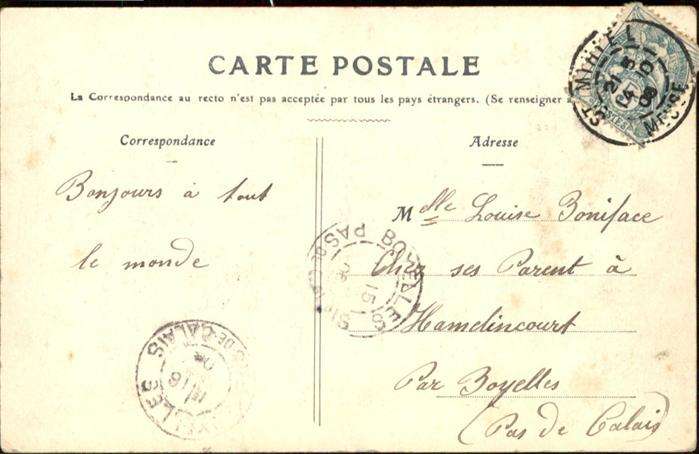 CARTE POSTALE
La Correspondance au recto n'est pas acceptée par tous les pays étrangers. (Se renseigner à
Correspondance
Adresse
Bonjours à tout
le monde
Mdlle Louise Boniface
Chez ses Parent à
Hamelincourt
Par Boyelles
(Pas de Calais)
ST MIHIEL
MEUSE
PAS DE CALAIS